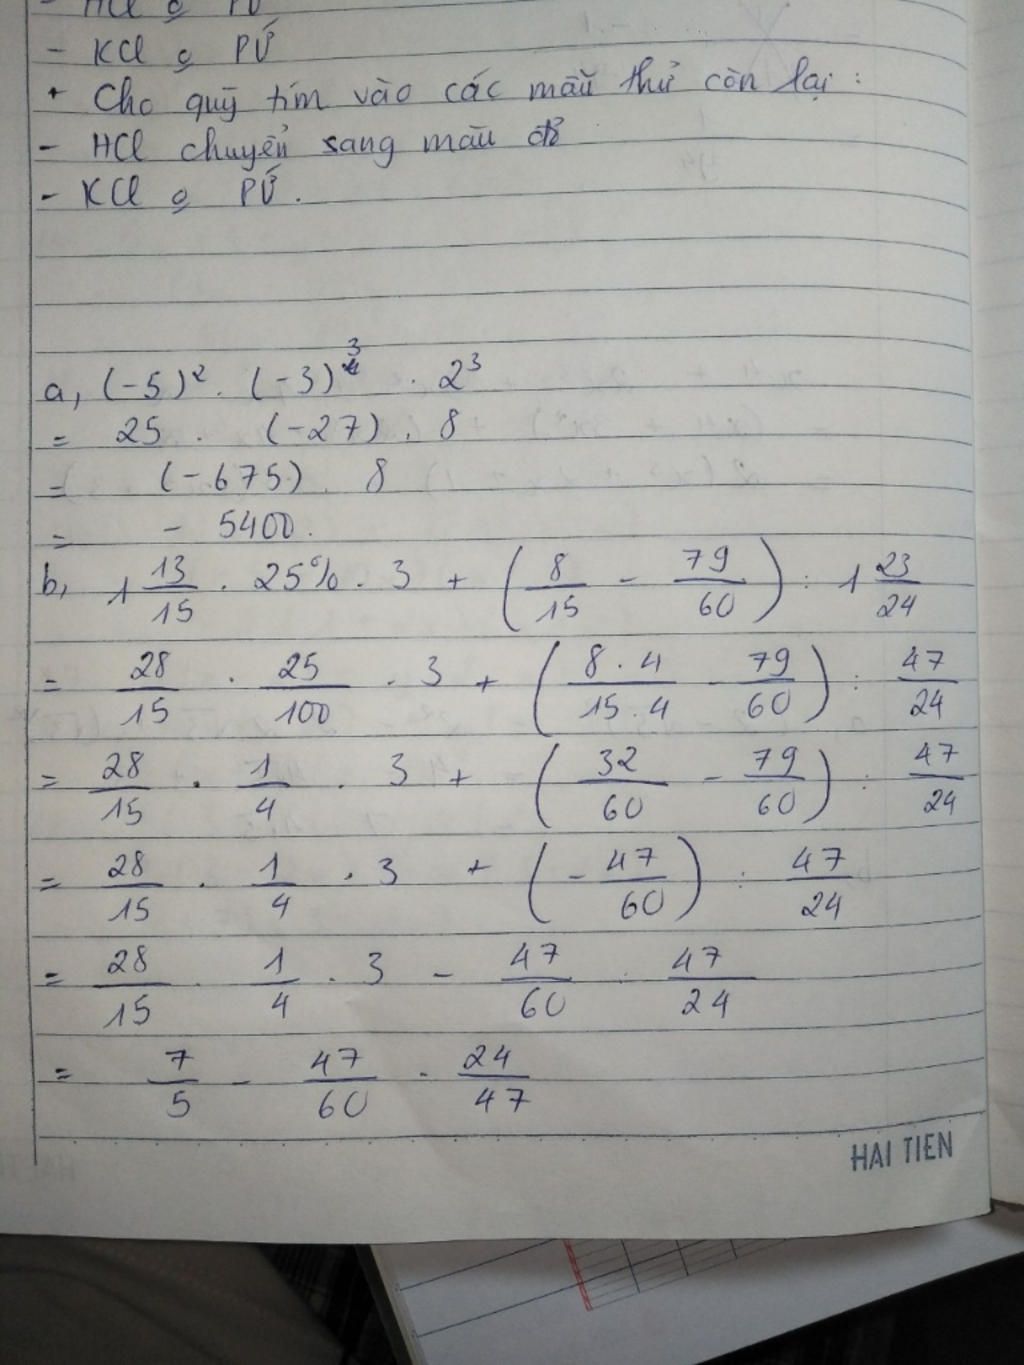 - HCl o PƯ
- KCl o PƯ
+ Cho quỳ tím vào các mẫu thử còn lại :
- HCl chuyển sang màu đỏ
- KCl o PƯ.
a, (-5)² . (-3)³ . 2³
= 25 . (-27) . 8
= (-675) . 8
= - 5400.
b, 1 13/15 . 25% . 3 + (8/15 - 79/60) : 1 23/24
= 28/15 . 25/100 . 3 + (8.4/15.4 - 79/60) : 47/24
= 28/15 . 1/4 . 3 + (32/60 - 79/60) : 47/24
= 28/15 . 1/4 . 3 + (-47/60) : 47/24
= 28/15 . 1/4 . 3 - 47/60 : 47/24
= 7/5 - 47/60 . 24/47
HAI TIEN